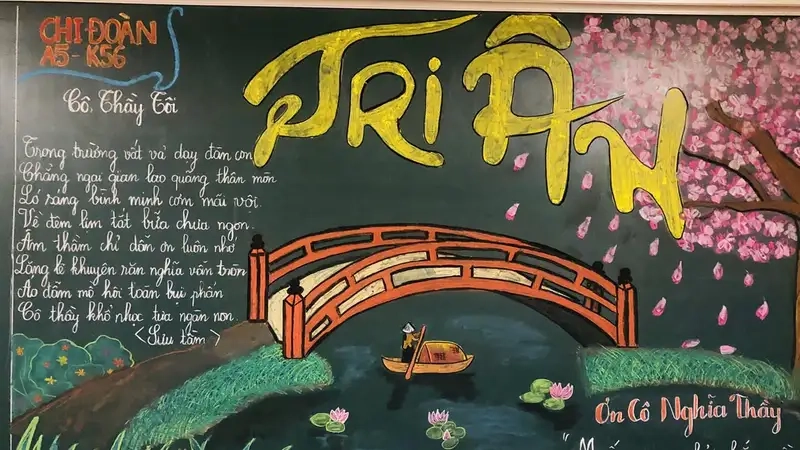 CHI ĐOÀN
A5 - K56
TRI ÂN
Cô, Thầy Tôi
Trong trường vất vả dạy đàn con
Chẳng ngại gian lao quảng thân mòn
Ló sáng bình minh cơm mãi vội
Về đêm lim tắt bữa chưa ngon
Âm thầm chỉ dẫn ơn luôn nhớ
Lặng lẽ khuyên răn nghĩa vẫn tròn
Áo đẫm mồ hôi toàn bụi phấn
Cô thầy khổ nhọc tựa ngàn non
<Sưu tầm>
Ơn Cô Nghĩa Thầy